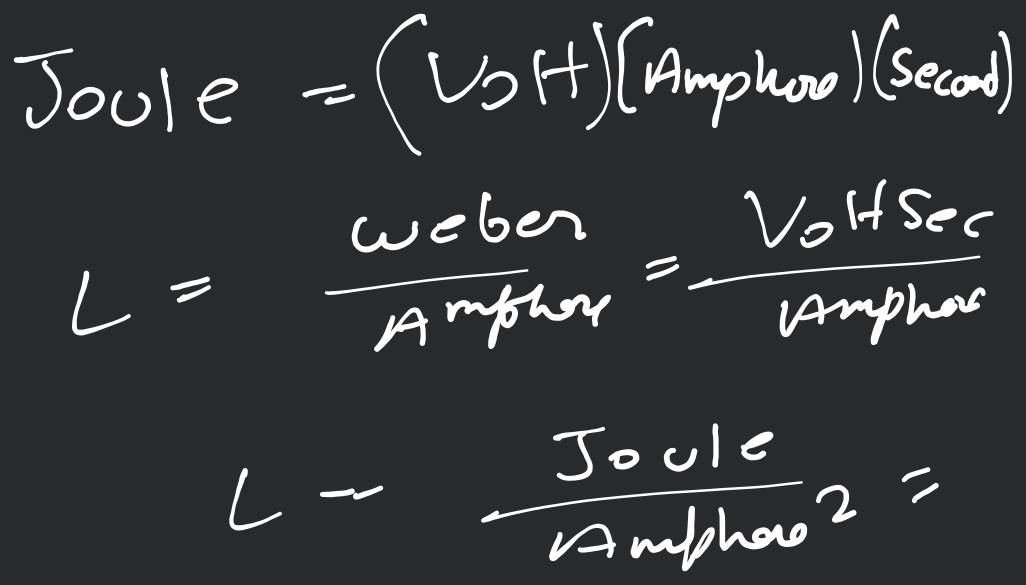 Joule = (Volt)(Amphere)(Second)
L = weber / Amphere = Volt Sec / Amphere
L = Joule / Amphere² =